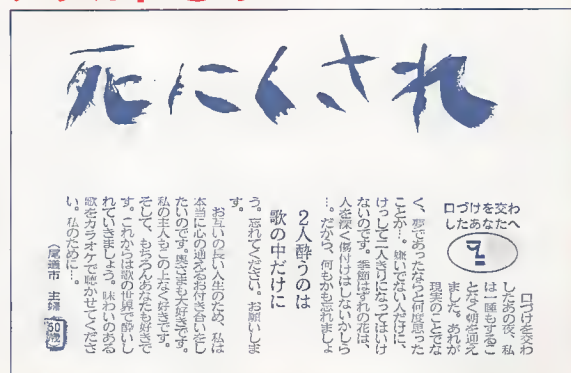 死にくされ
口づけを交わ
したあなたへ
口づけを交わ
したあの夜、私
は一睡もするこ
となく朝を迎え
ました。あれが
現実のことでな
く、夢であったなら何度思った
ことか…。嫌いでない人だけに、
けっして二人きりになってはいけ
ないのです。季節はずれの花は、
人を深く傷付けはしないかしら
…。だから、何もかも忘れましょ
う。忘れてください。お願いしま
す。
2人酔うのは
歌の中だけに
お互いの長い人生のため、私は
本当に心の通えるお付き合いをし
たいのです。奥さまも大好きです。
私の主人もこの上なく好きです。
そして、もちろんあなたも好きで
す。これからは歌の世界で酔いし
れていきましょう。味わいのある
歌をカラオケで聴かせてくださ
い。私のために…。
(尾道市 主婦 50歳)